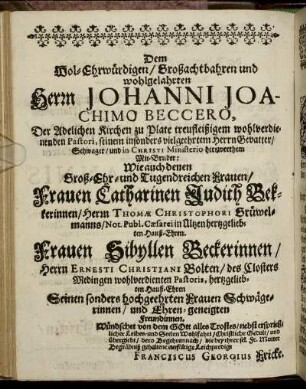 Dem
Wol-Ehrwürdigen/ Großachtbahren und
wohlgelahrten
Herrn JOHANNI JOA-
CHIMO BECCERO,
Der Adelichen Kirchen zu Plate treufleißigem wohlverdie-
nenden Pastori, seinem insonders vielgeehrtem Herrn Gevatter/
Schwager/ und in CHRISTI Ministerio hertzwerthem
Mit-Bruder:
Wie auch denen
Groß-Ehr- und Tugendreichen Frauen/
Frauen Catharinen Judith Bek-
kerinnen/ Herrn THOMÆ CHRISTOPHORI Brüwel-
manns/ Not. Publ. Cæsarei in Ultzen hertzgelieb-
ten Hauß-Ehren.
Frauen Sibyllen Beckerinnen/
Herrn ERNESTI CHRISTIANI Bolten/ des Closters
Medingen wohlverdienten Pastoris, hertzgelieb-
ten Hauß-Ehren
Seinen sonders hochgeehrten Frauen Schwäge-
rinnen/ und Ehren-geneigten
Freundinnen.
Wündschet von dem GOtt alles Trostes/ nebst ersprieß-
licher Leibes- und Seelen Wohlfahrt/ Christliche Gedult/ und
übergiebt/ dero Begehren nach/ die bey ihrer sel. Fr. Mutter
Begräbniß gehaltene einfältige Leichpredigt
FRANCISCUS GEORGIUS Kricke.